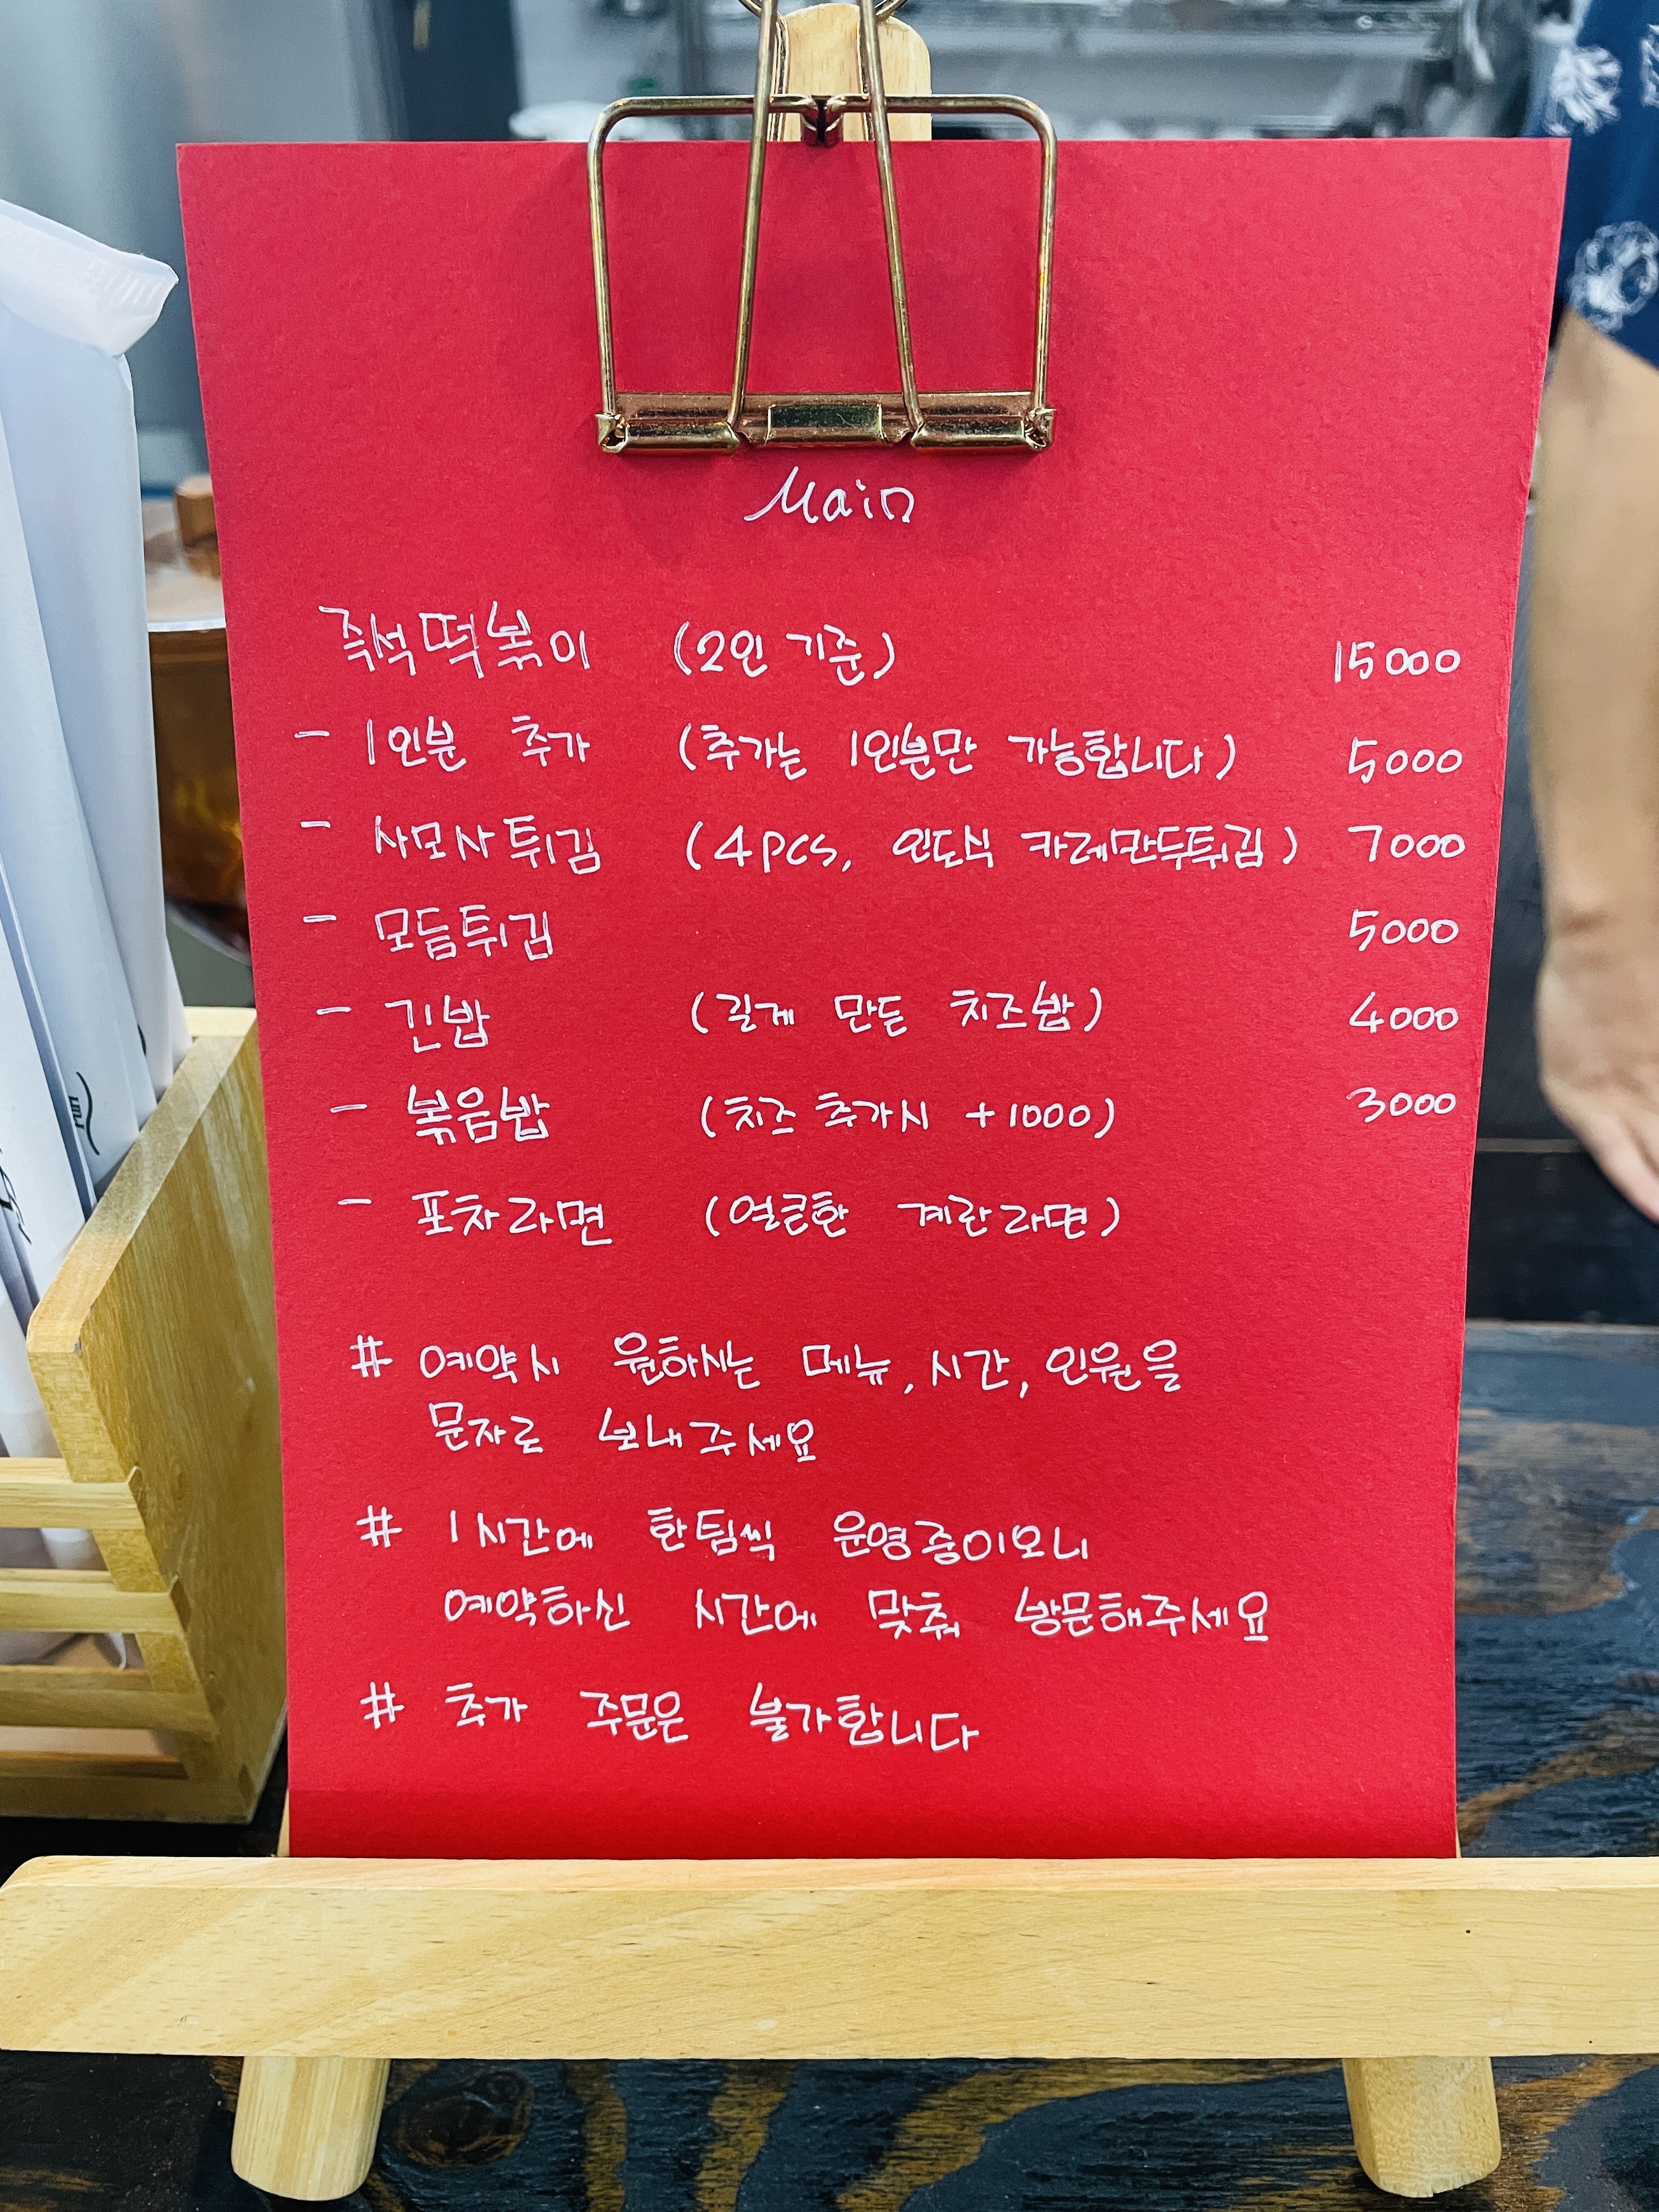 Main
즉석떡볶이 (2인 기준) 15000
- 1인분 추가 (추가는 1인분만 가능합니다) 5000
- 사모사튀김 (4pcs, 인도식 카레만두튀김) 7000
- 모듬튀김 5000
- 긴밥 (길게 만든 치즈밥) 4000
- 볶음밥 (치즈 추가시 +1000) 3000
- 포차라면 (얼큰한 계란라면)
# 예약시 원하시는 메뉴, 시간, 인원을
문자로 보내주세요
# 1시간에 한팀씩 운영중이오니
예약하신 시간에 맞춰 방문해주세요
# 추가 주문은 불가합니다